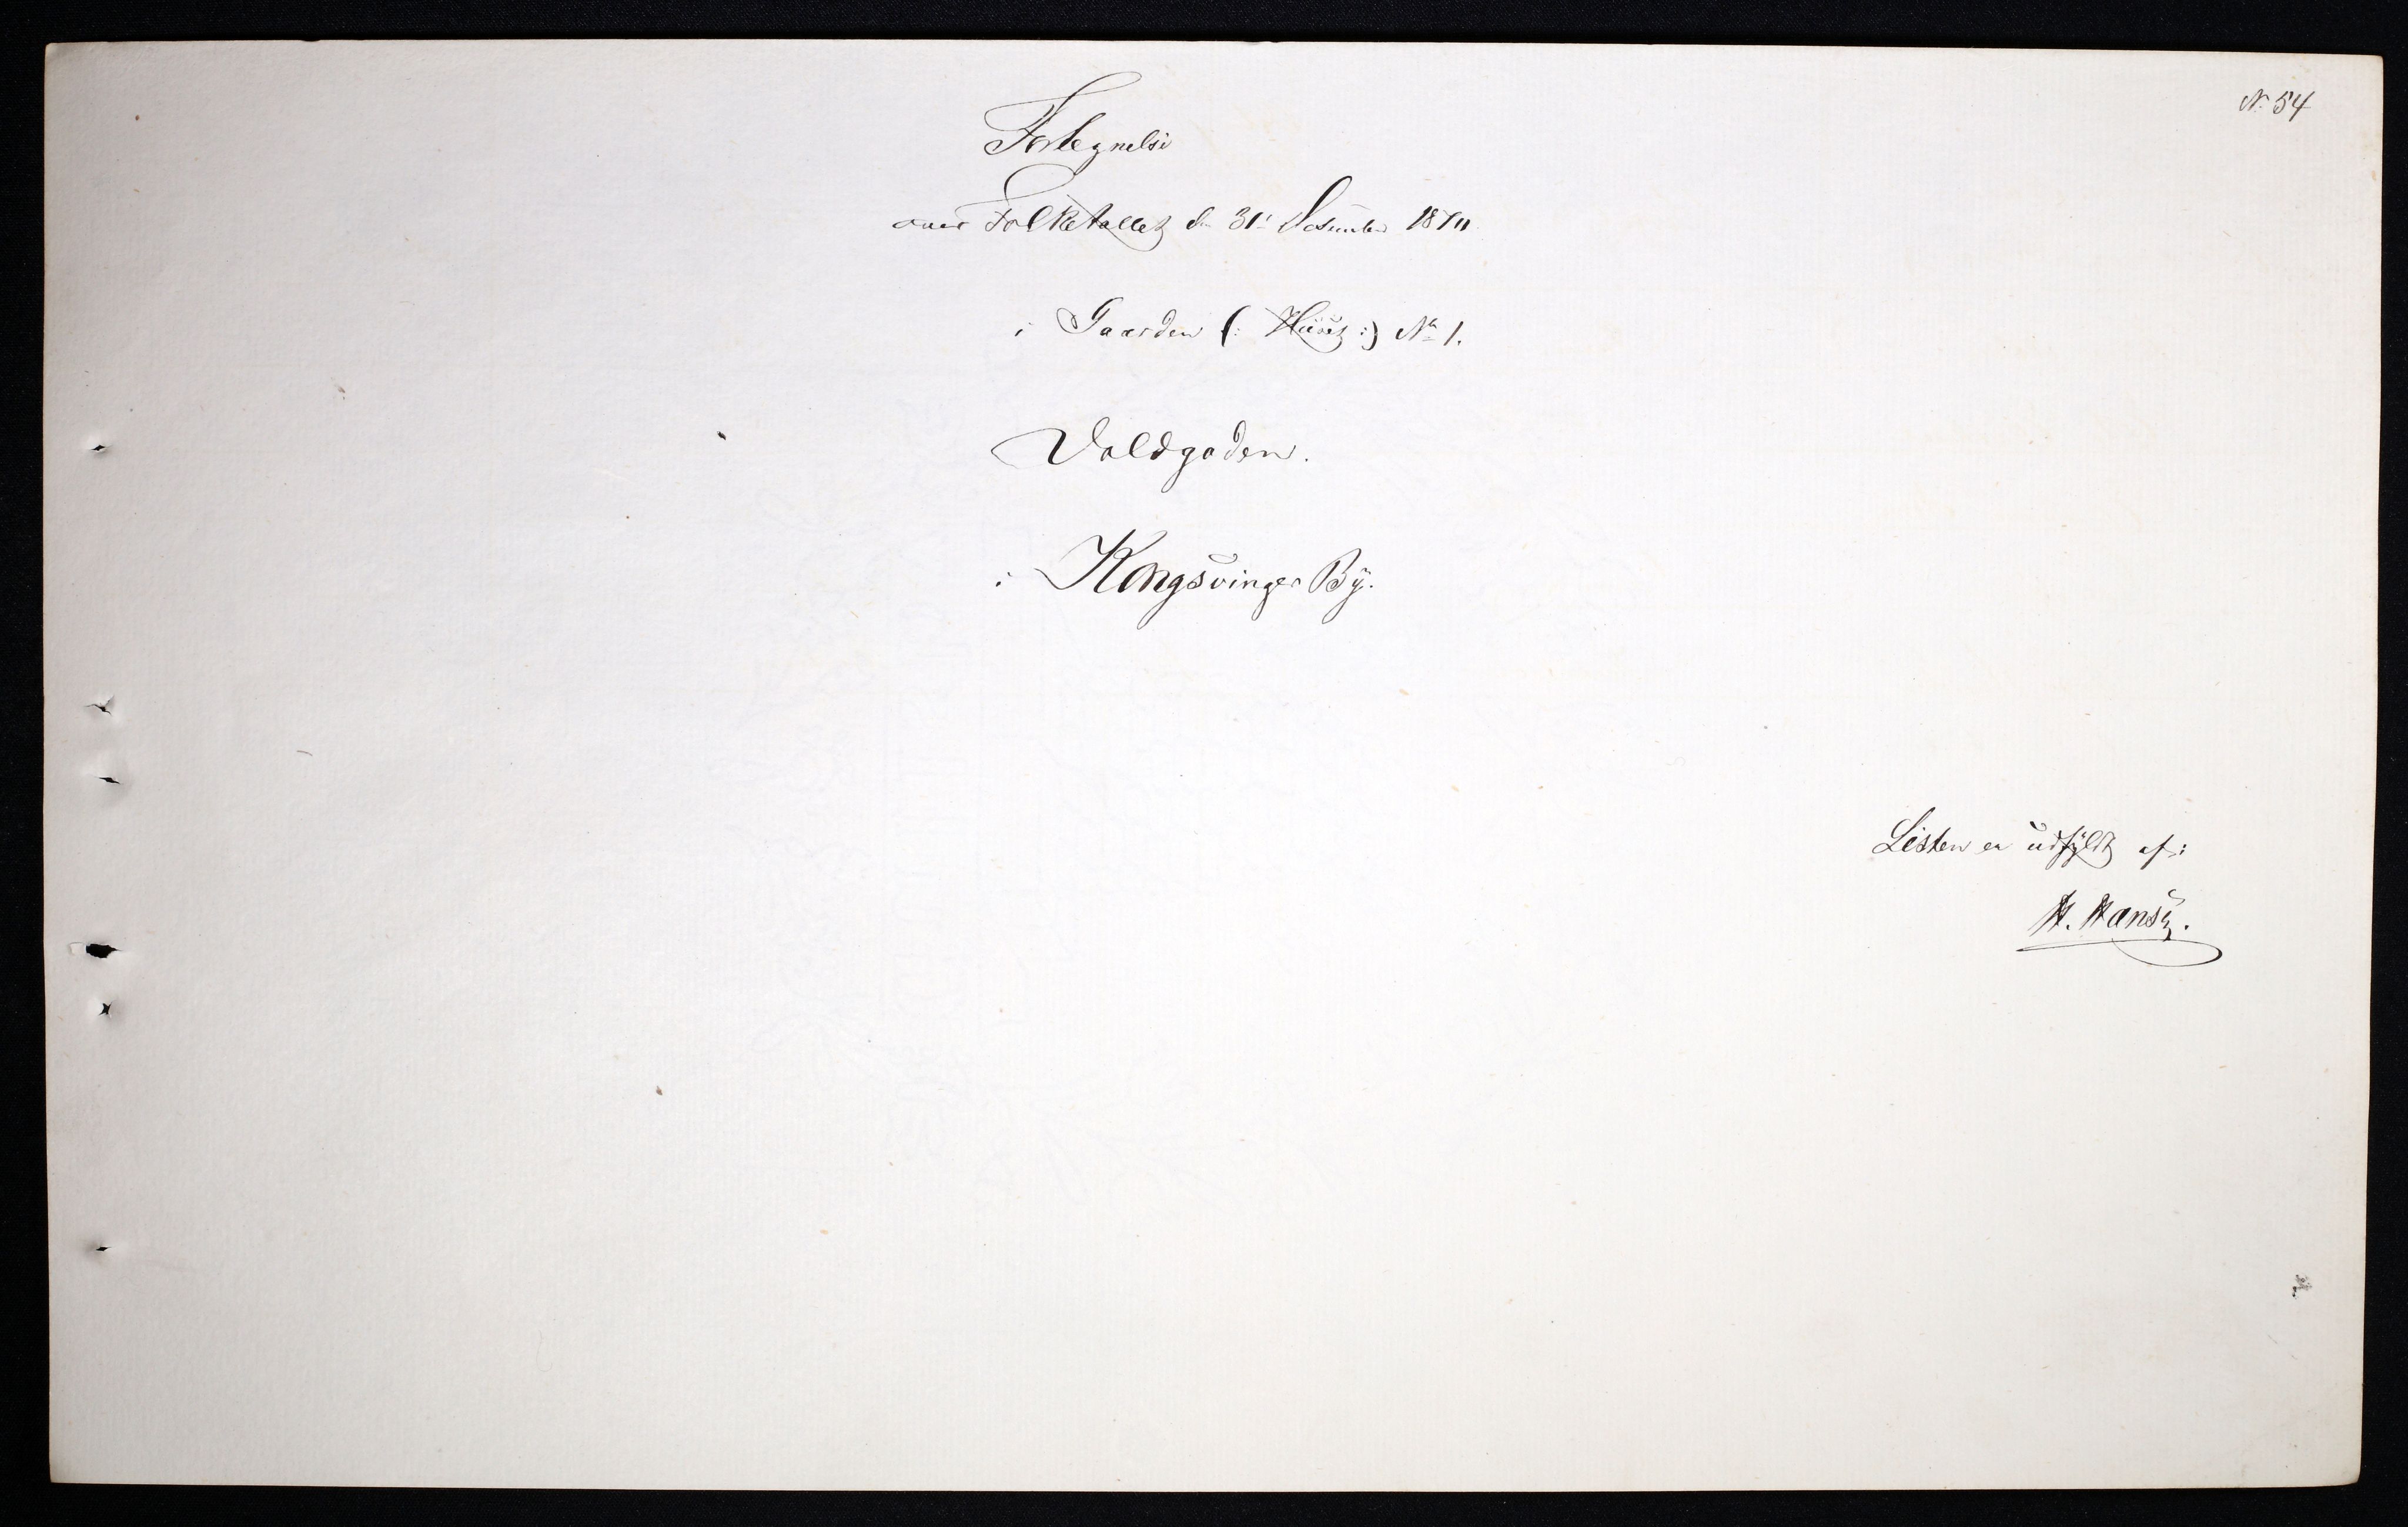 N. 54
Fortegnelse
over Folketallet d. 31' December 1870
i Gaarden (: Huset :) No 1.
Voldgaden.
i Kongsvinger By.
Listen er udfyldt af:
H. Hansen.